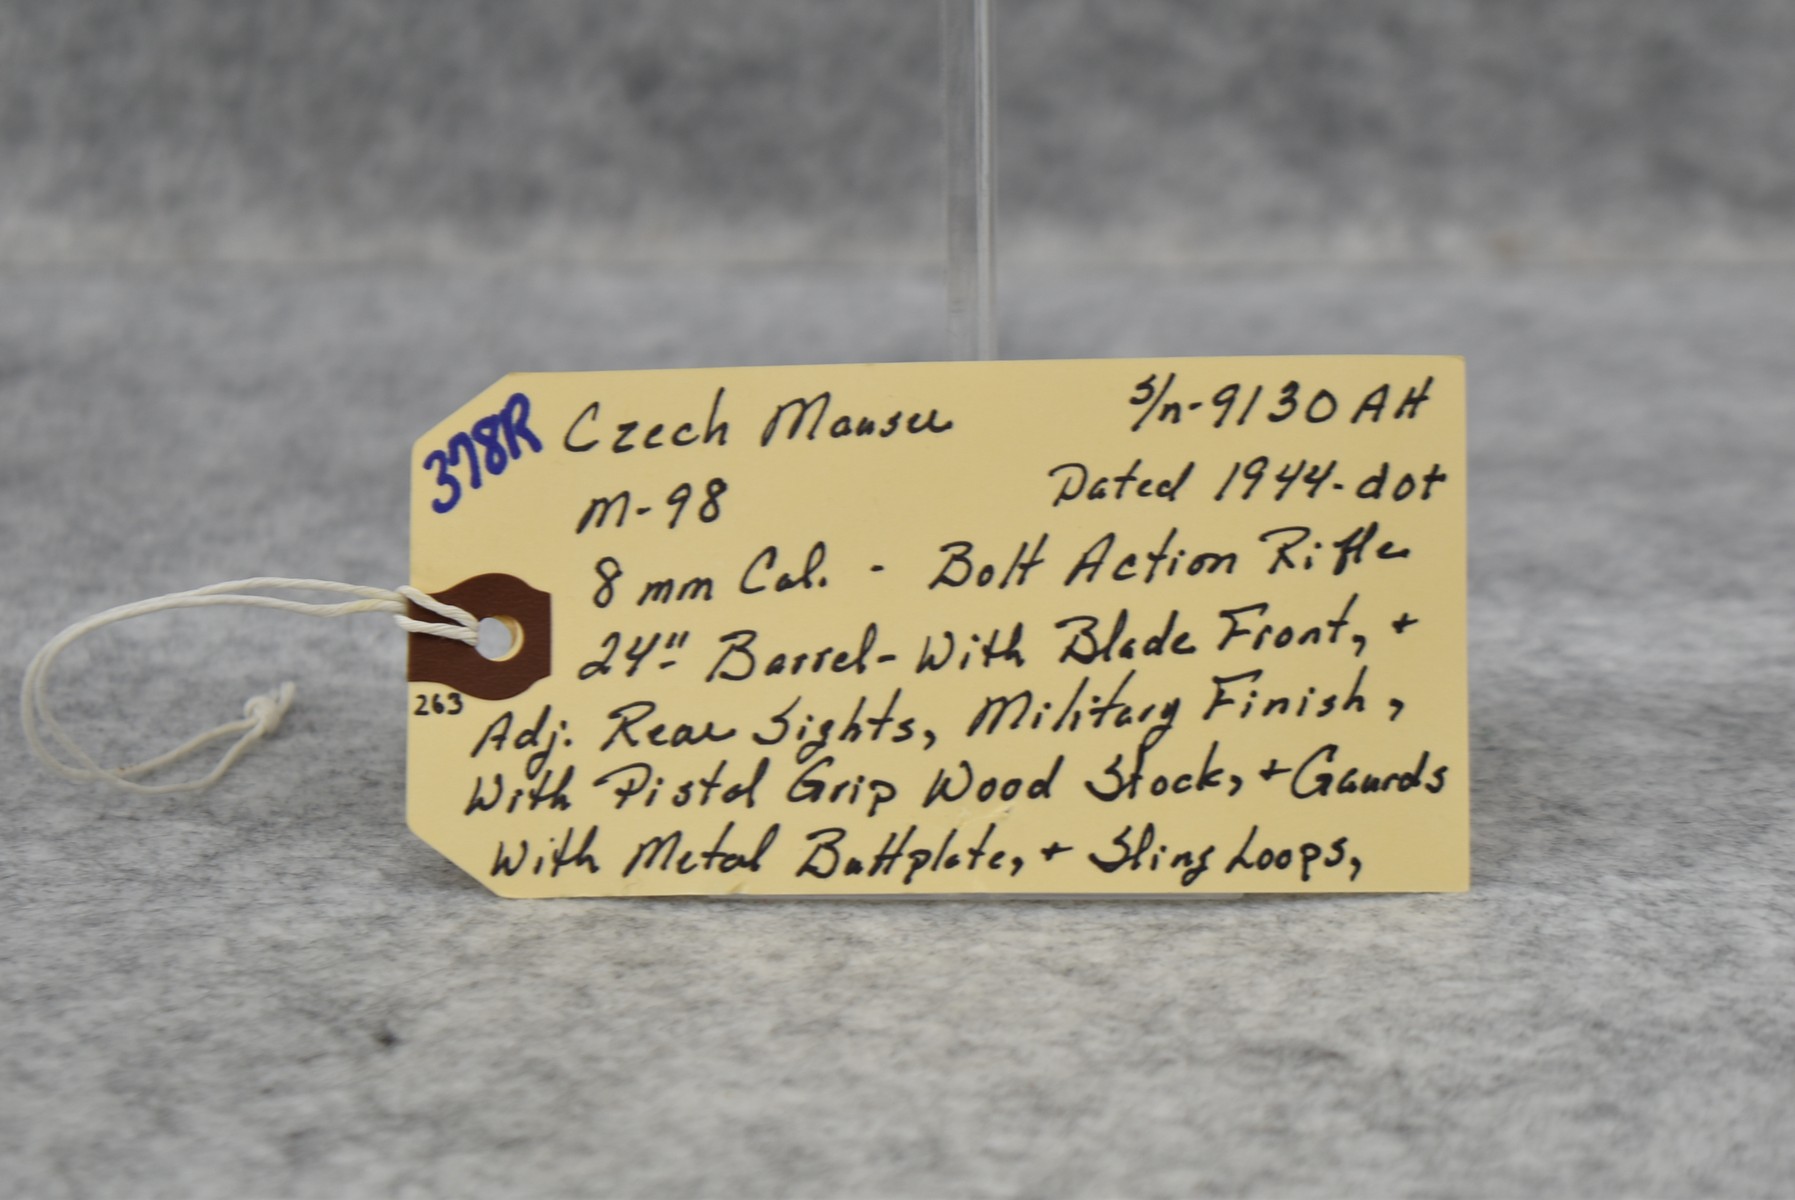 378R Czech Mauser S/n-9130 AH
M-98 Dated 1944-dot
8 mm Cal. - Bolt Action Rifle
24" Barrel- With Blade Front, +
263
Adj. Rear Sights, Military Finish,
With Pistol Grip Wood Stock, + Gaurds
With Metal Buttplate, + Sling Loops,